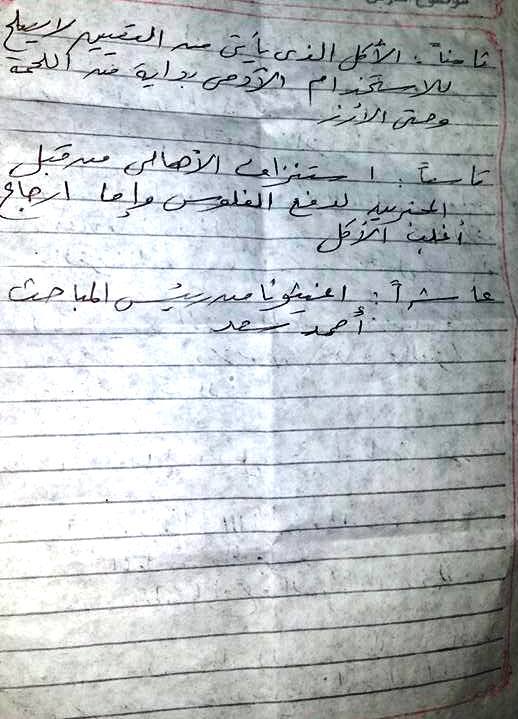 ثامناً : الأكل الذى يأتى من التعيين لايصلح
للاستخدام الآدمى بداية من اللحمة
وحتى الأرز
تاسعاً : استنزاف الأهالى من قبل
المخبرين لدفع الفلوس وإما ارجاع
أغلب الأكل
عاشراً : اغيثونا من رئيس المباحث
أحمد سعد